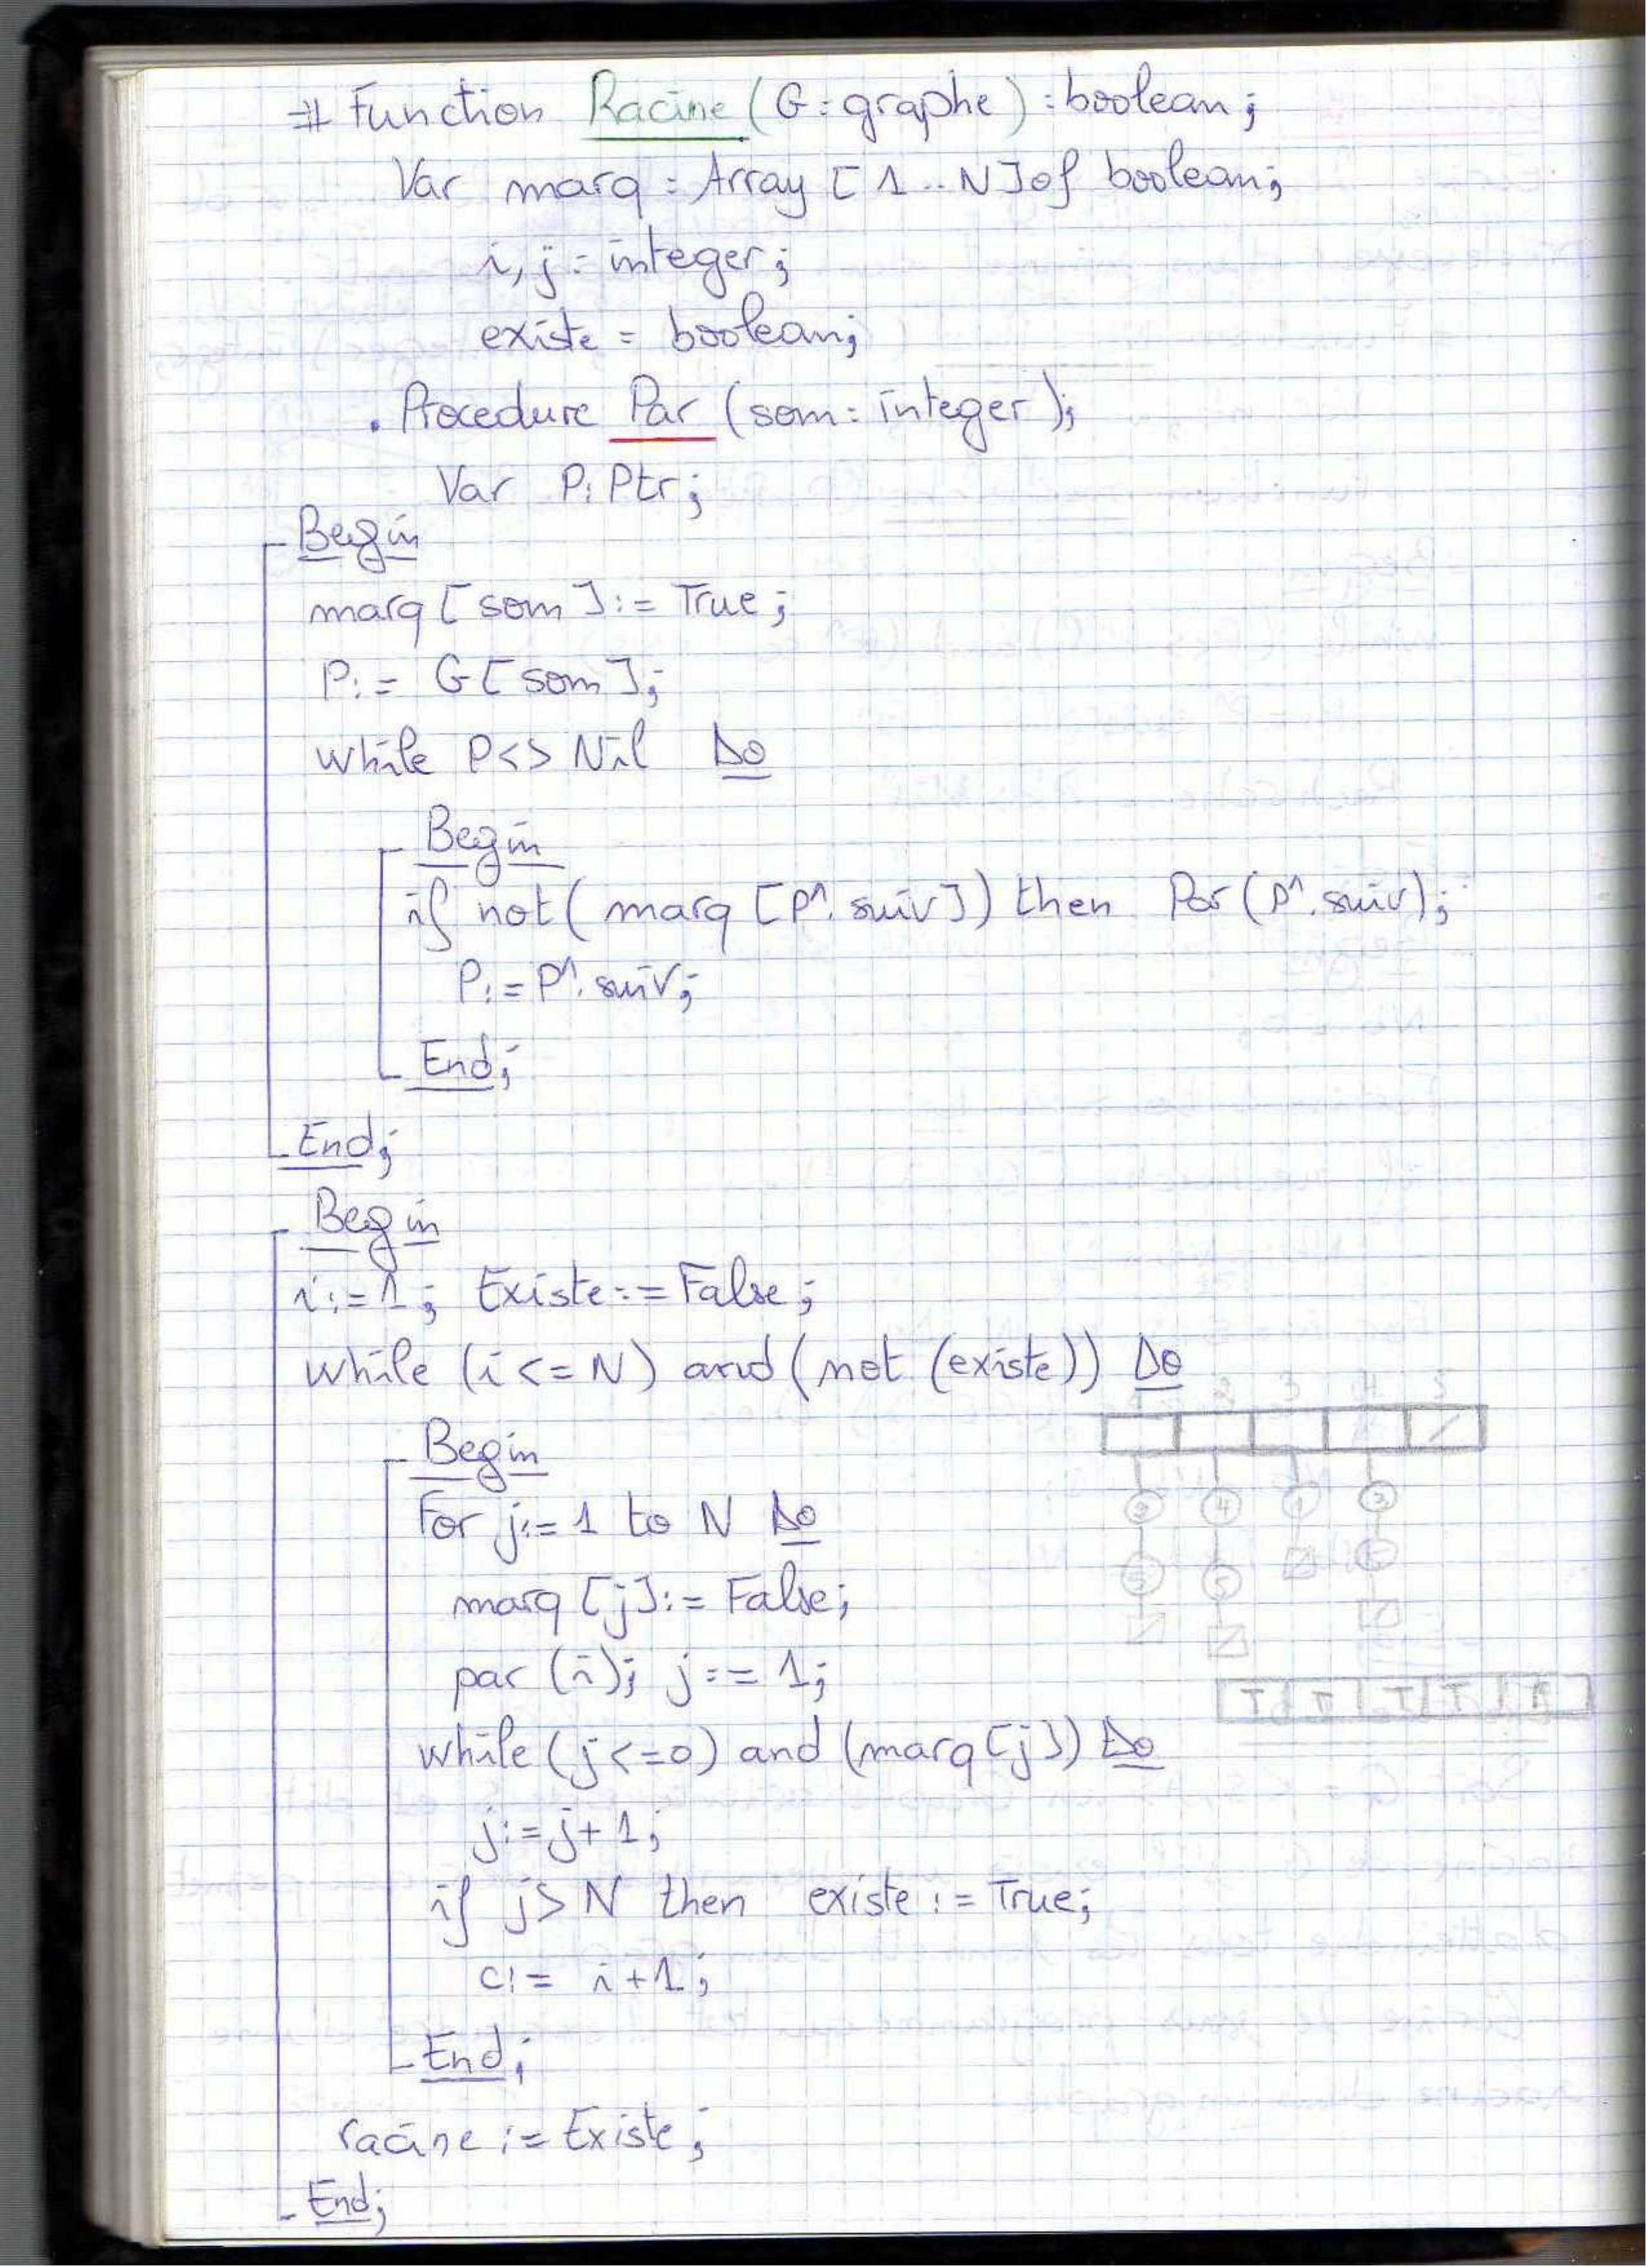 # Function Racine (G: graphe) : boolean;
Var marq : Array [1..N] of boolean;
i, j : integer;
existe : boolean;
. Procedure Par (som : integer);
Var P: Ptr;
Begin
marq [som] := True;
P := G[som];
while P<> Nil Do
Begin
if not( marq [P^. suiv]) then Par (P^. suiv);
P := P^. suiv;
End;
End;
Begin
i := 1; Existe := False;
while (i <= N) and (not (existe)) Do
2 3 4 5
Begin
For j := 1 to N Do
4 1
marq [j] := False;
5
par (i); j := 1;
T T T
while (j <= 0) and (marq [j]) Do
j := j + 1;
if j > N then existe := True;
c := i + 1;
End;
racine := Existe;
End;